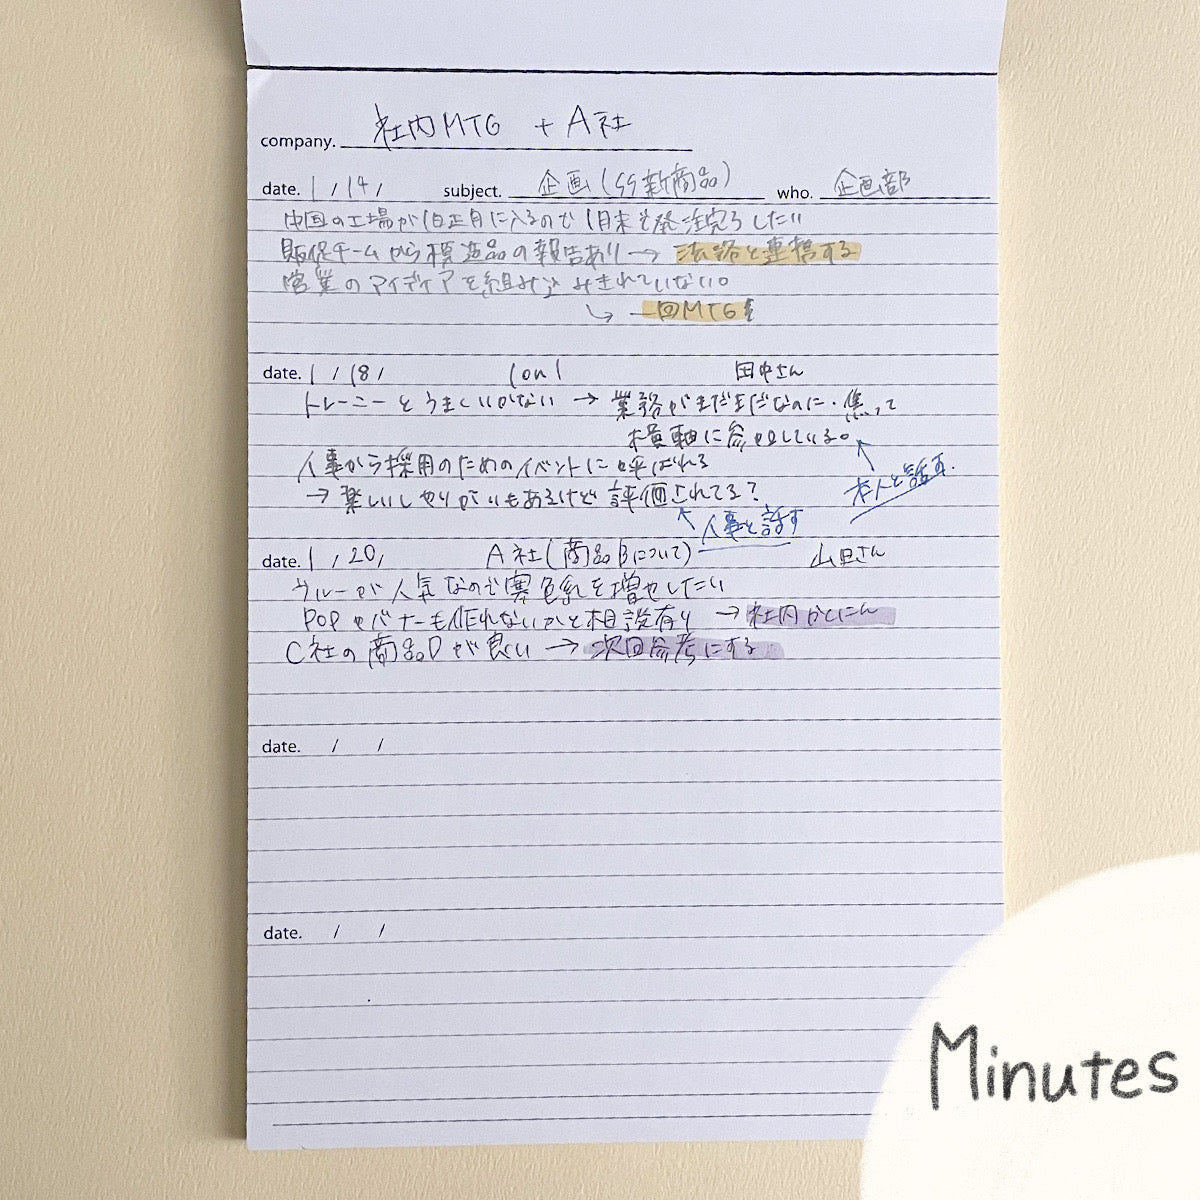 company. 社内MTG + A社
date. 1/14/ subject. 企画(SS新商品) who. 企画部
中国の工場が旧正月に入るので1月末を発注完了したい
販促チームから模造品の報告あり → 法務と連携する
営業のアイディアを組み込みきれていない。
↳ 一回MTGを
date. 1/18/ 1on1 田中さん
トレーニーとうまくいかない → 業務がまだまだなのに・焦って
横軸に参加している。
人事から採用のためのイベントに呼ばれる
本人と話す.
→ 楽しいしやりがいもあるけど評価されてる?
人事と話す
date. 1/20/ A社(商品Bについて) 山田さん
ブルーが人気なので寒色系を増やしたい
POPやバナーも作れないかと相談有り → 社内かくにん
C社の商品Dが良い → 次回参考にする
date. / /
date. / /
Minutes